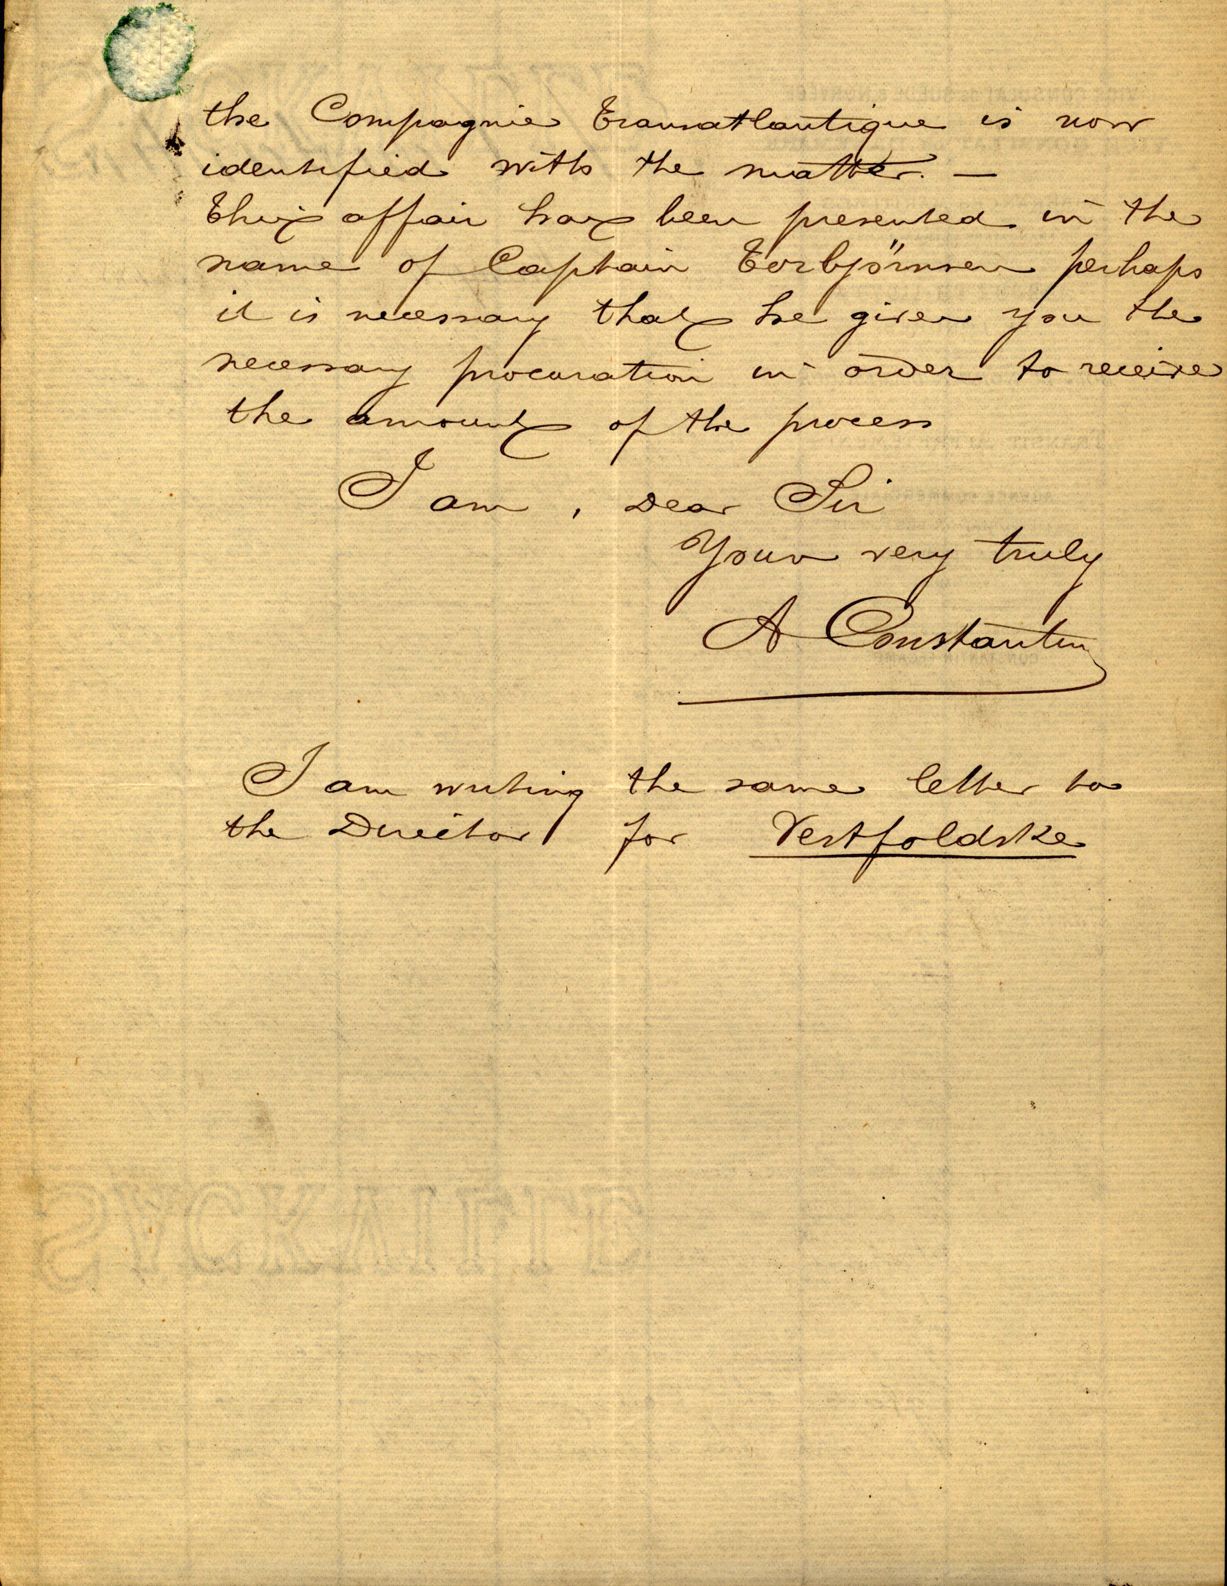 the Compagnie Transatlantique is now
identified with the matter. —
This affair has been presented in the
name of Captain Torbjörnsen perhaps
it is necessary that he given you the
necessary procuration in order to receive
the amount of the process
I am, Dear Sir
Yours very truly
A Constantin
I am writing the same letter to
the Director for Vestfoldske